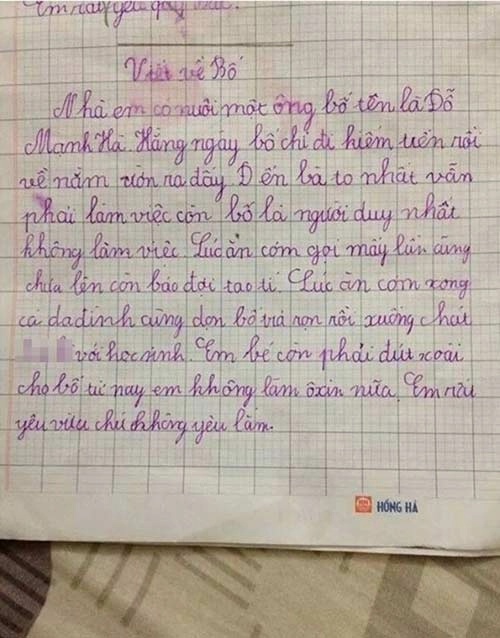 Em rất yêu quý
Viết về Bố
Nhà em có nuôi một ông bố tên là Đỗ
Mạnh Hà. Hằng ngày bố chỉ đi kiếm tiền rồi
về nằm ườn ra đấy. Đến bà to nhất vẫn
phải làm việc còn bố là người duy nhất
không làm việc. Lúc ăn cơm gọi mấy lần cũng
chưa lên còn bảo đợi tao tí. Lúc ăn cơm xong
cả da đình cùng dọn bố rửa rọn rồi xuống chat
với học sinh. Em bé còn phải đút xoài
cho bố từ nay em không làm ôxin nữa. Em rất
yêu vừa chứ không yêu lắm.
HỒNG HÀ